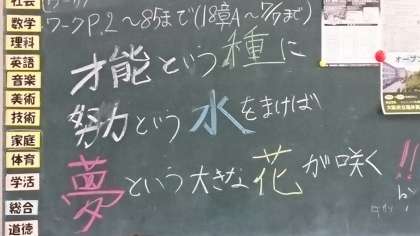 社会
数学
理科
英語
音楽
美術
技術
家庭
体育
学活
総合
道徳
ワークP.2〜85まで(18章A〜7/7まで)
才能という種に
努力という水をまけば
夢という大きな花が咲く!!
オープ